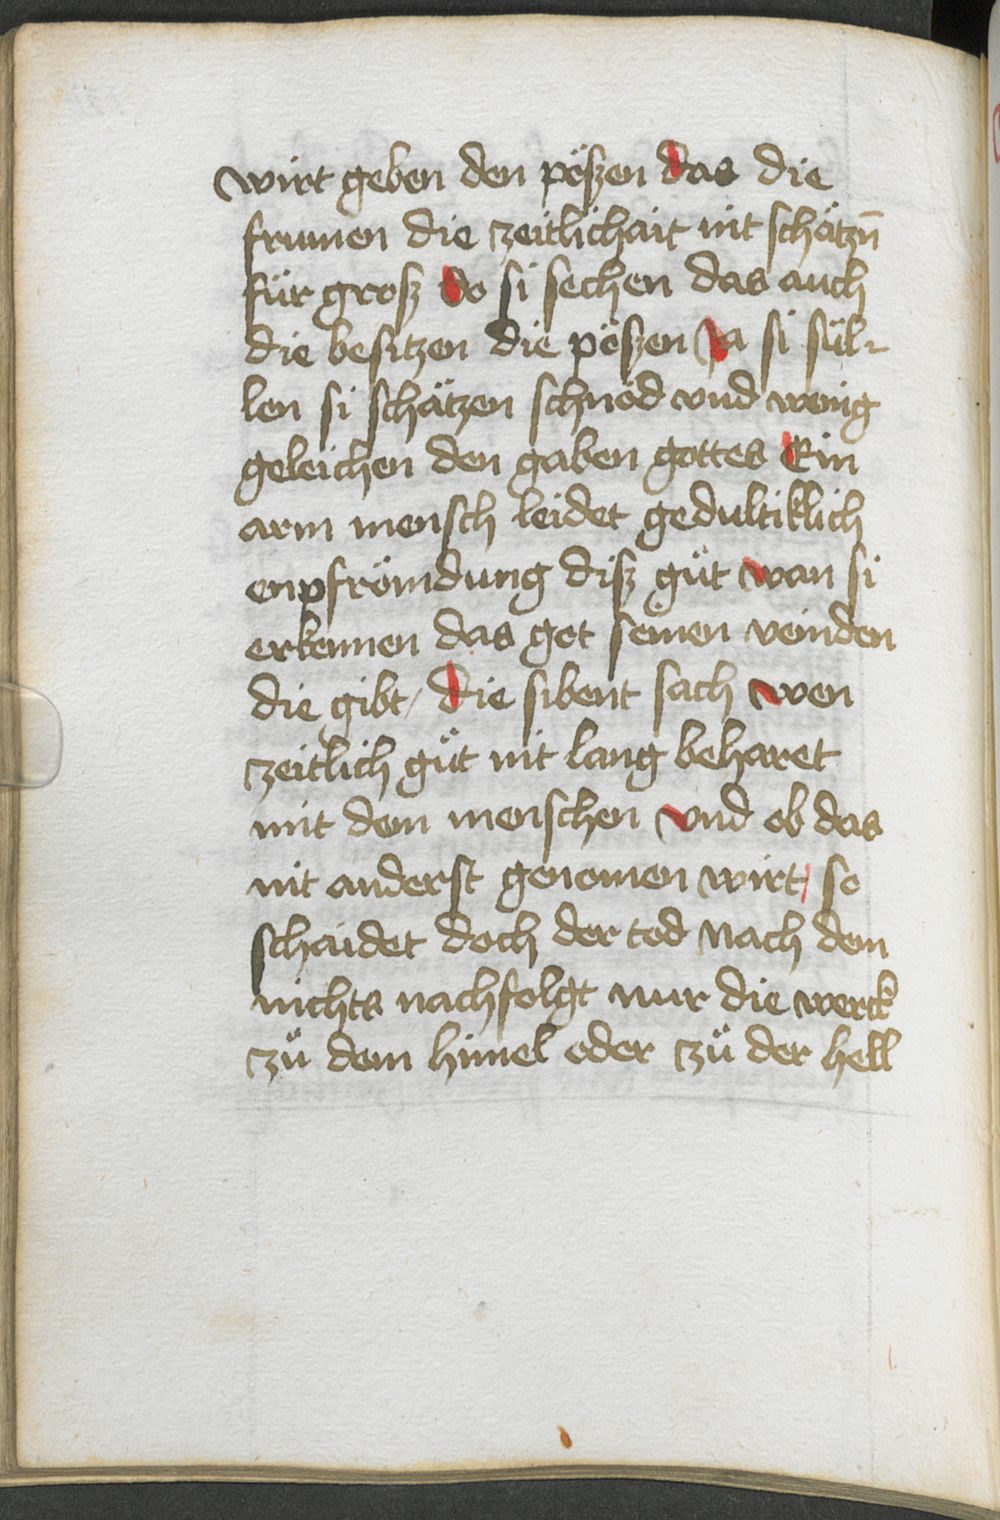 wirt geben den pöszen das die
frumen die zeitlichait nit schätzn̄
für grosz do si sechen das auch
die besitzen die pöszen Ja si sül-
len si schätzen schnöd vnd wenig
geleichen den gaben gottes Ein
arm mensch leidet gedultiklich
enpfrömdung disz gůt wan si
erkennen das got seinen veinden
die gibt / die sibent sach wen
zeitlich gůt nit lang beharet
mit dem menschen vnd ob das
nit anderst genomen wirt / so
schaidet doch der tod nach dem
nichts nachfolgt nur die werck
zů dem himel oder zů der hell